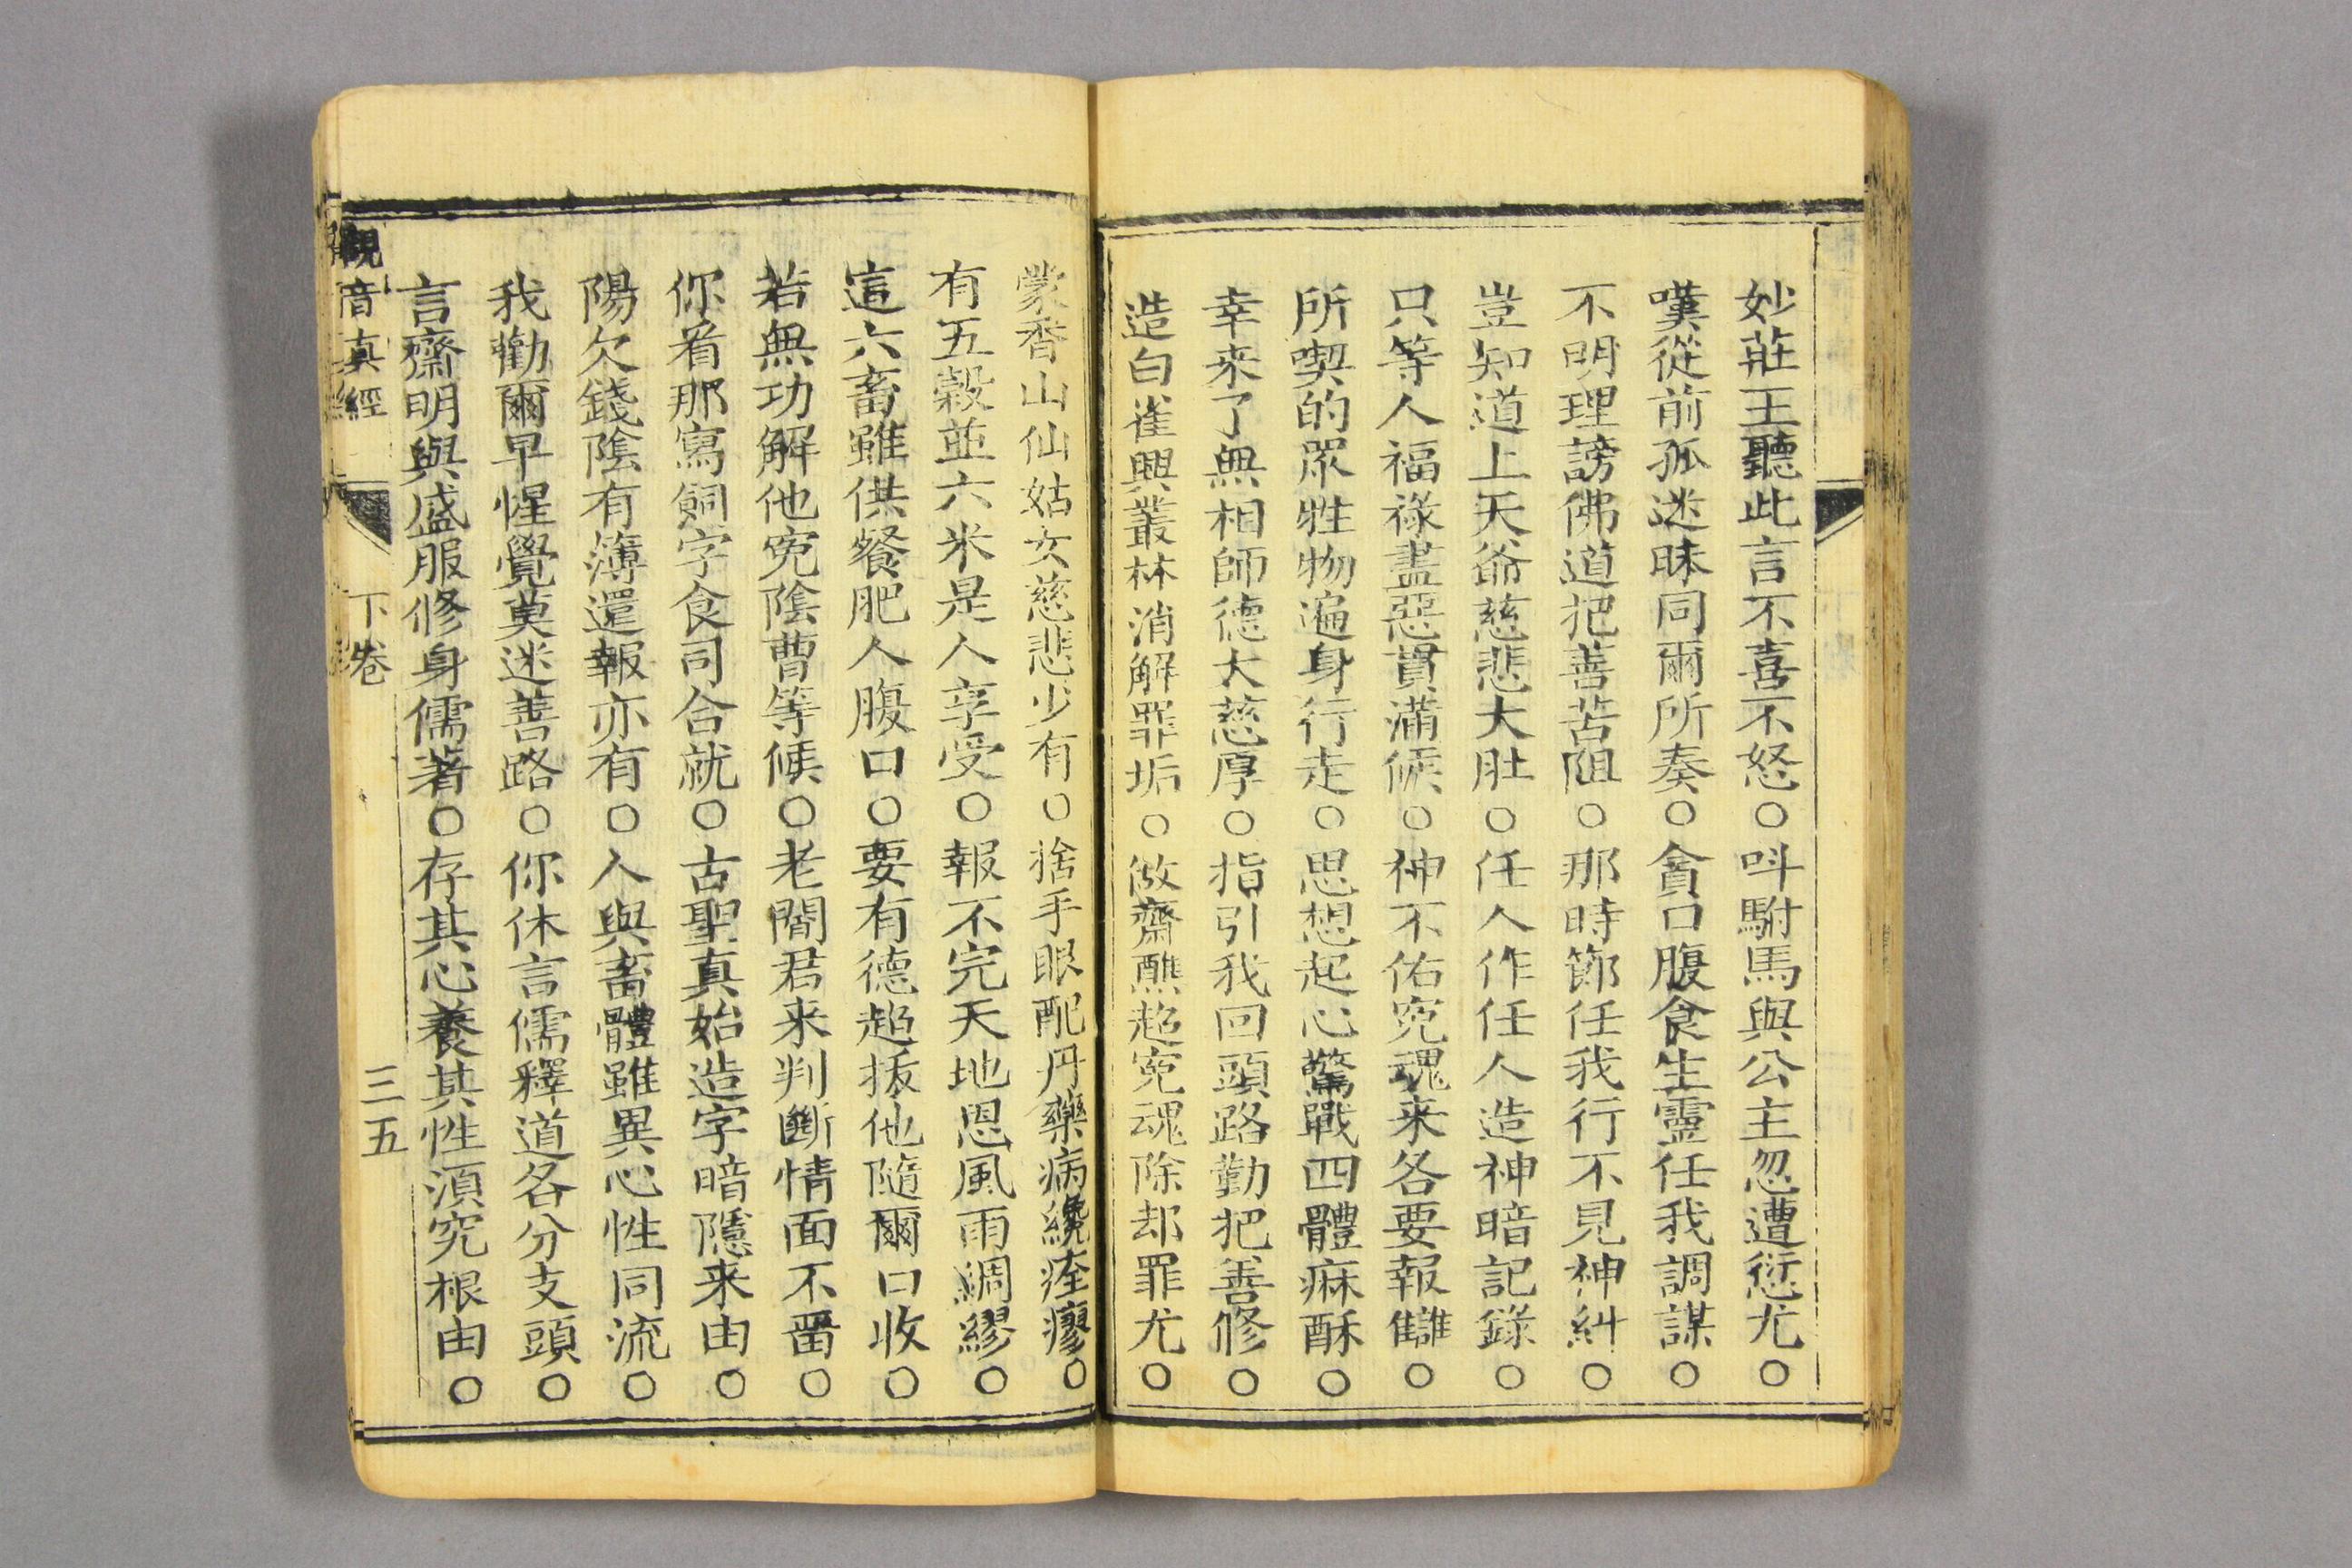 妙莊王聽此言不喜不怒○呌駙馬與公主忽遭愆尤○
嘆從前孤迷昧同爾所奏○貪口腹食生靈任我調謀○
不明理謗佛道把善苦阻○那時節任我行不見神糾○
豈知道上天爺慈悲大肚○任人作任人造神暗記錄○
只等人福祿盡惡貫滿候○神不佑寃魂来各要報讎○
所喫的眾牲物遍身行走○思想起心驚戰四體痳酥○
幸来了無相師德大慈厚○指引我回頭路勤把善修○
造白雀興叢林消解罪垢○做齋醮超寃魂除却罪尤○
蒙香山仙姑女慈悲少有○捨手眼配丹藥病纔痊瘳○
有五穀並六米是人享受○報不完天地恩風雨綢繆○
這六畜雖供餐肥人腹口○要有德超拔他隨爾口收○
若無功解他寃陰曹等候○老閻君来判斷情面不畱○
你看那寫飼字食司合就○古聖真始造字暗隱来由○
陽欠錢陰有簿還報亦有○人與畜體雖異心性同流○
我勸爾早惺覺莫迷善路○你休言儒釋道各分支頭○
言齋明與盛服修身儒著○存其心養其性須究根由○
觀音真經 下卷 三五